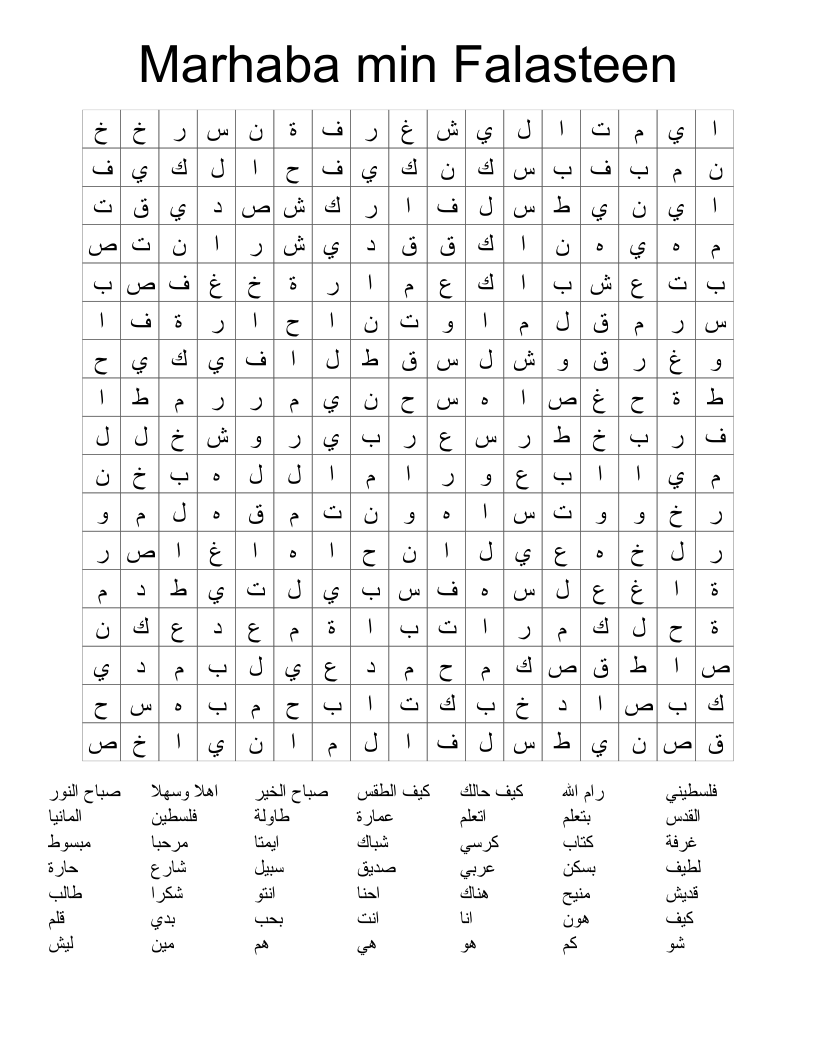 Marhaba min Falasteen
ا ي م ت ا ل ي ش غ ر ف ة ن س ر خ خ
ن م ب ف ب س ك ن ك ي ف ح ا ل ك ي ف
ا ي ن ي ط س ل ف ا ر ك ش ص د ي ق ت
م ه ي ه ن ا ك ق ق د ي ش ر ا ن ت ص
ب ت ع ش ب ا ك ع م ا ر ة خ غ ف ص ب
س ر م ق ل م ا و ت ن ا ح ا ر ة ف ا
و غ ر ق و ش ل س ق ط ل ا ف ي ك ي ح
ط ة ح غ ص ا ه س ح ن ي م ر ر م ط ا
ف ر ب خ ط ر س ع ر ب ي ر و ش خ ل ل
م ي ا ا ب ع و ر ا م ا ل ل ه ب خ ن
ر خ و و ت س ا ه و ن ت م ق ه ل م و
ر ل خ ه ع ي ل ا ن ح ا ه ا غ ا ص ر
ة ا غ ع ل س ه ف س ب ي ل ت ي ط د م
ة ح ل ك م ر ا ت ب ا ة م ع د ع ك ن
ص ا ط ق ص ك م ح م د ع ي ل ب م د ي
ك ب ص ا د خ ب ك ت ا ب ح م ب ه س ح
ق ص ن ي ط س ل ف ا ل م ا ن ي ا خ ص
فلسطيني رام الله كيف حالك كيف الطقس صباح الخير اهلا وسهلا صباح النور
القدس بتعلم اتعلم عمارة طاولة فلسطين المانيا
غرفة كتاب كرسي شباك ايمتا مرحبا مبسوط
لطيف بسكن عربي صديق سبيل شارع حارة
قديش منيح هناك احنا انتو شكرا طالب
كيف هون انا انت بحب بدي قلم
شو كم هو هي هم مين ليش